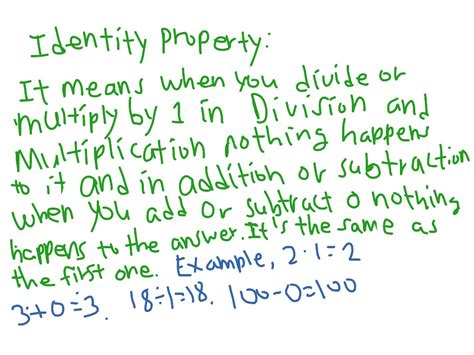 Identity Property:
It means when you divide or
multiply by 1 in Division and
Multiplication nothing happens
to it and in addition or subtraction
when you add or subtract 0 nothing
happens to the answer. It's the same as
the first one. Example, 2·1=2
3+0=3. 18÷1=18. 100-0=100